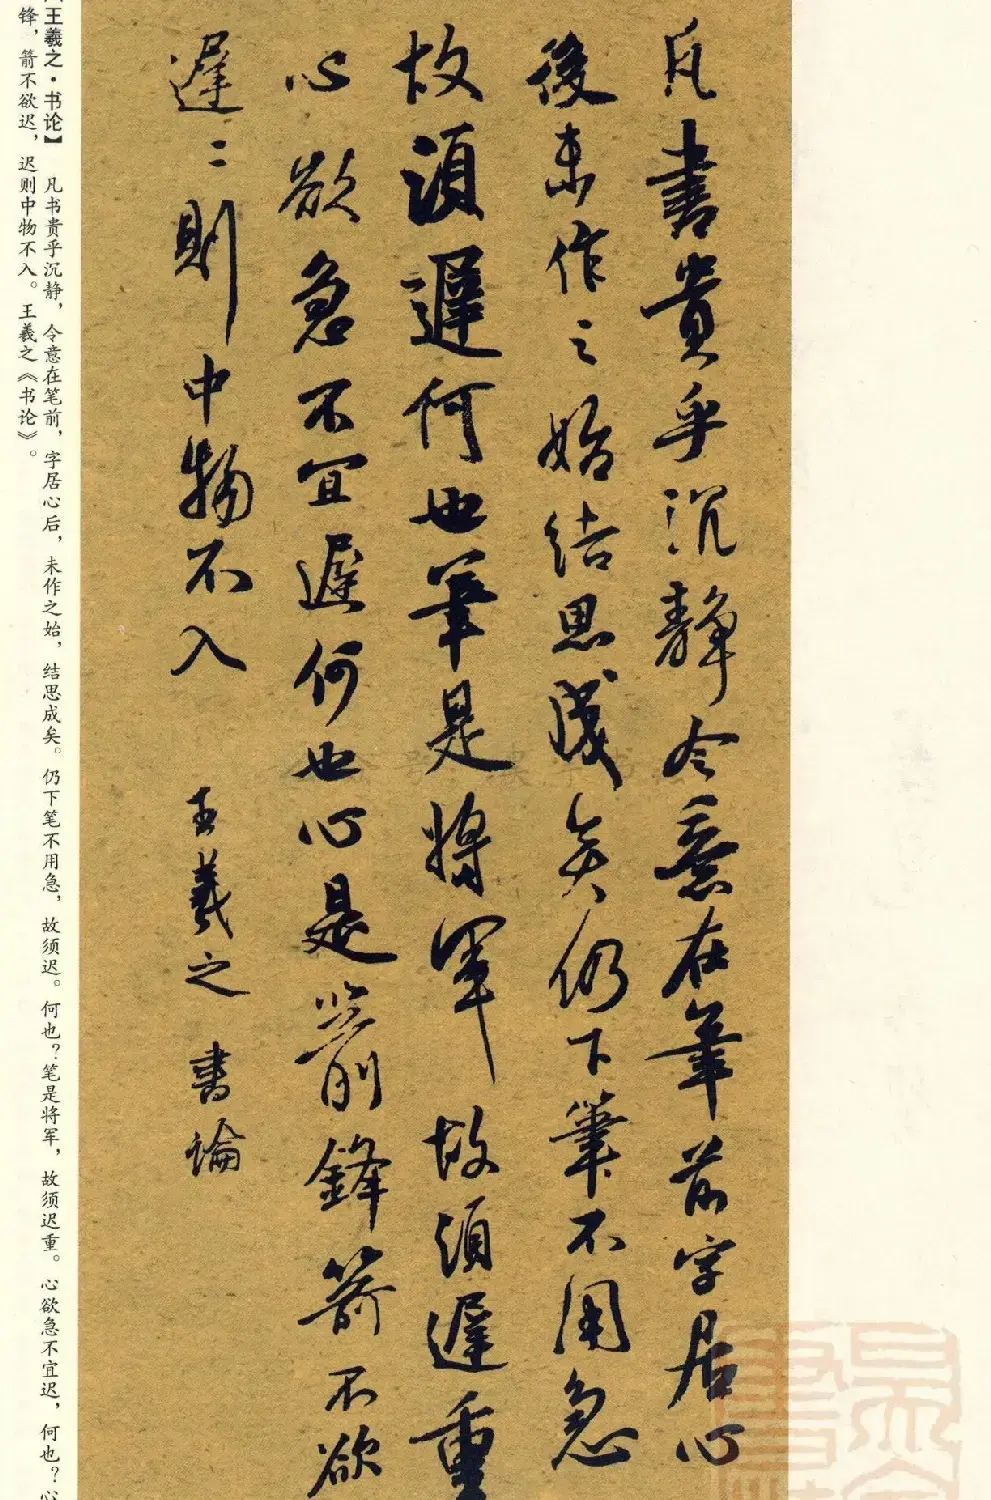 凡書貴乎沉靜令意在筆前字居心
後未作之始結思成矣仍下筆不用急
故須遲何也筆是將軍故須遲重
心欲急不宜遲何也心是箭鋒箭不欲
遲〻則中物不入 王羲之 書論
【王羲之·书论】 凡书贵乎沉静，令意在笔前，字居心后，未作之始，结思成矣。仍下笔不用急，故须迟。何也？笔是将军，故须迟重。心欲急不宜迟，何也？心
锋，箭不欲迟，迟则中物不入。王羲之《书论》。